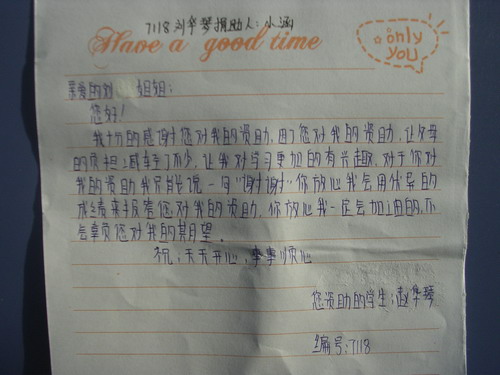 7118 刘华琴捐助人：小涵
Have a good time
only
you
亲爱的刘 姐姐：
您好！
我十分的感谢您对我的资助，由于您对我的资助，让父母
的负担上减轻了不少，让我对学习更加的有兴趣，对于你对
我的资助我只能说一句“谢谢”你放心我会用优异的
成绩来报答您对我的资助，你放心我一定会加油的，不
会辜负您对我的期望。
祝：天天开心，事事顺心
您资助的学生：赵华琴
编号：7118